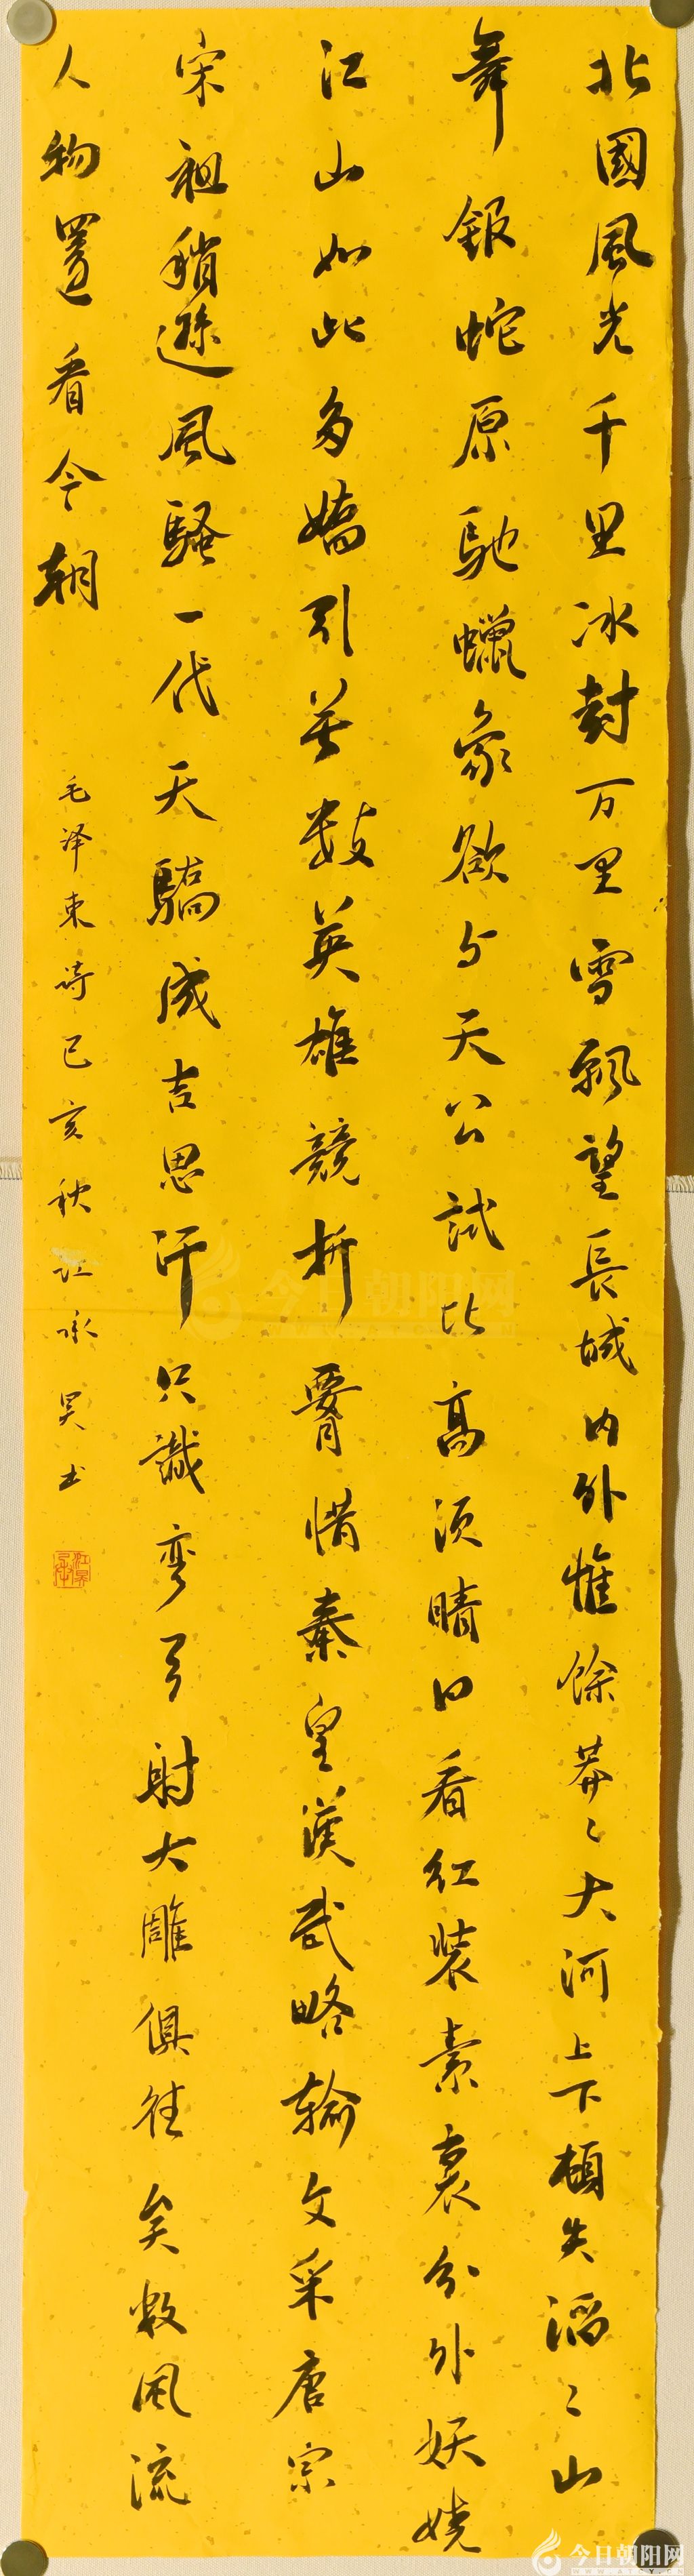 北國風光千里冰封万里雪飘望長城内外惟馀莽〻大河上下頓失滔〻山
舞銀蛇原馳蠟象欲与天公試比高須晴日看红装素裹分外妖娆
江山如此多嬌引無数英雄競折腰惜秦皇漢武略输文采唐宗
宋祖稍遜風騷一代天驕成吉思汗只識弯弓射大雕俱往矣数風流
人物還看今朝
毛泽東诗己亥秋江承昊书
今日朝阳网
今日朝阳网